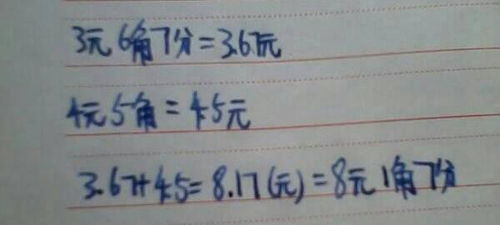 3元6角7分=3.67元
4元5角=4.5元
3.67+4.5=8.17(元)=8元1角7分